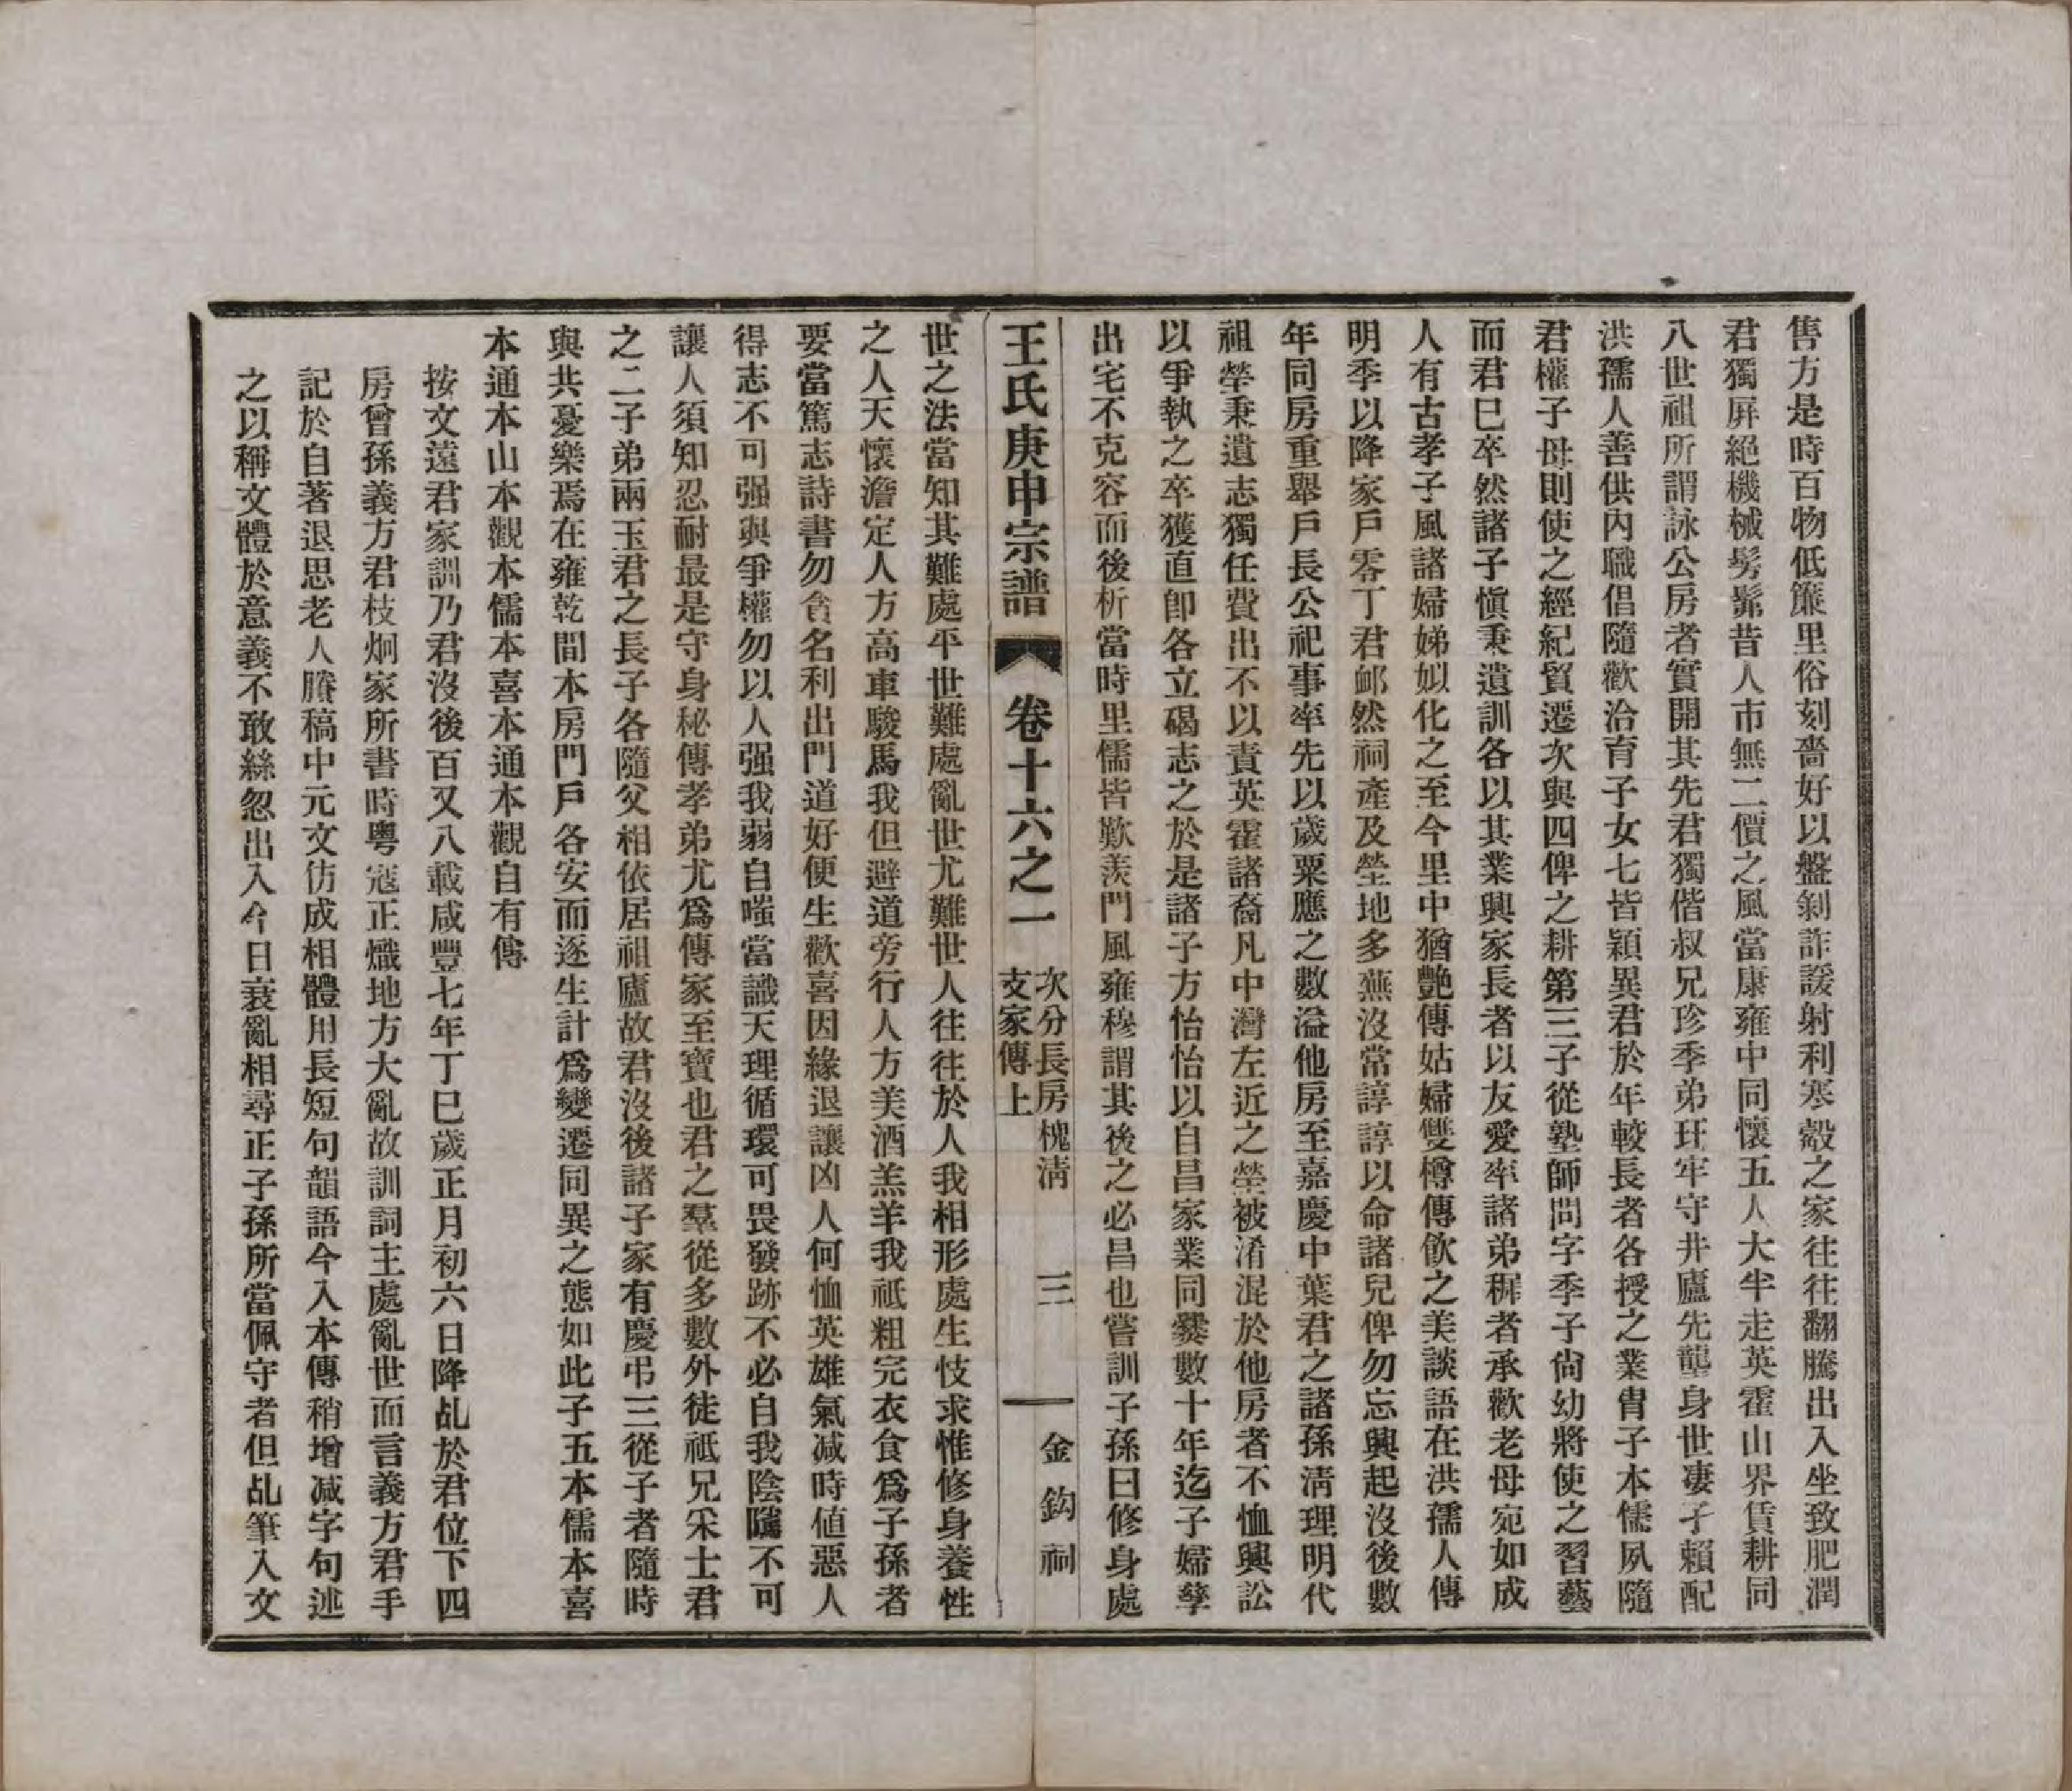 售方是時百物低簾里俗刻嗇好以盤剝詐諼射利寒殼之家往往翻騰出入坐致肥潤
君獨屏絕機械髣髴昔人市無二價之風當康雍中同懷五人大半走英霍山界賃耕同
八世祖所謂詠公房者實開其先君獨偕叔兄珍季弟玨牢守井廬先龍身世凄孑賴配
洪孺人善供內職倡隨歡洽育子女七皆穎異君於年較長者各授之業胄子本儒夙隨
君權子母則使之經紀貿遷次與四俾之耕第三子從塾師問字季子尙幼將使之習藝
而君巳卒然諸子愼秉遺訓各以其業興家長者以友愛率諸弟穉者承歡老母宛如成
人有古孝子風諸婦娣姒化之至今里中猶艷傳姑婦雙樽傳飮之美談語在洪孺人傳
明季以降家戶零丁君卹然祠產及塋地多蕪沒常諄諄以命諸兒俾勿忘興起沒後數
年同房重舉戶長公祀事率先以歲粟應之數溢他房至嘉慶中葉君之諸孫淸理明代
祖塋秉遺志獨任費出不以責英霍諸裔凡中灣左近之塋被淆混於他房者不恤興訟
以爭執之卒獲直卽各立碣志之於是諸子方怡怡以自昌家業同爨數十年迄子婦孳
出宅不克容而後析當時里儒皆歎羨門風雍穆謂其後之必昌也嘗訓子孫曰修身處
王氏庚申宗譜 卷十六之一 次分長房槐淸支家傳上 三 金鈎祠
世之法當知其難處平世難處亂世尤難世人往往於人我相形處生忮求惟修身養性
之人天懷澹定人方高車駿馬我但避道旁行人方美酒羔羊我祗粗完衣食爲子孫者
要當篤志詩書勿貪名利出門道好便生歡喜因緣退讓凶人何恤英雄氣減時値惡人
得志不可强與爭權勿以人强我弱自嗤當識天理循環可畏發跡不必自我陰隲不可
讓人須知忍耐最是守身秘傳孝弟尤爲傳家至寶也君之羣從多數外徒祗兄采士君
之二子弟兩玉君之長子各隨父相依居祖廬故君沒後諸子家有慶弔三從子者隨時
與共憂樂焉在雍乾間本房門戶各安而逐生計爲變遷同異之態如此子五本儒本喜
本通本山本觀本儒本喜本通本觀自有傳
按文遠君家訓乃君沒後百又八載咸豐七年丁巳歲正月初六日降乩於君位下四
房曾孫義方君枝炯家所書時粵寇正熾地方大亂故訓詞主處亂世而言義方君手
記於自著退思老人賸稿中元文仿成相體用長短句韻語今入本傳稍增减字句述
之以稱文體於意義不敢絲忽出入今日衰亂相尋正子孫所當佩守者但乩筆入文